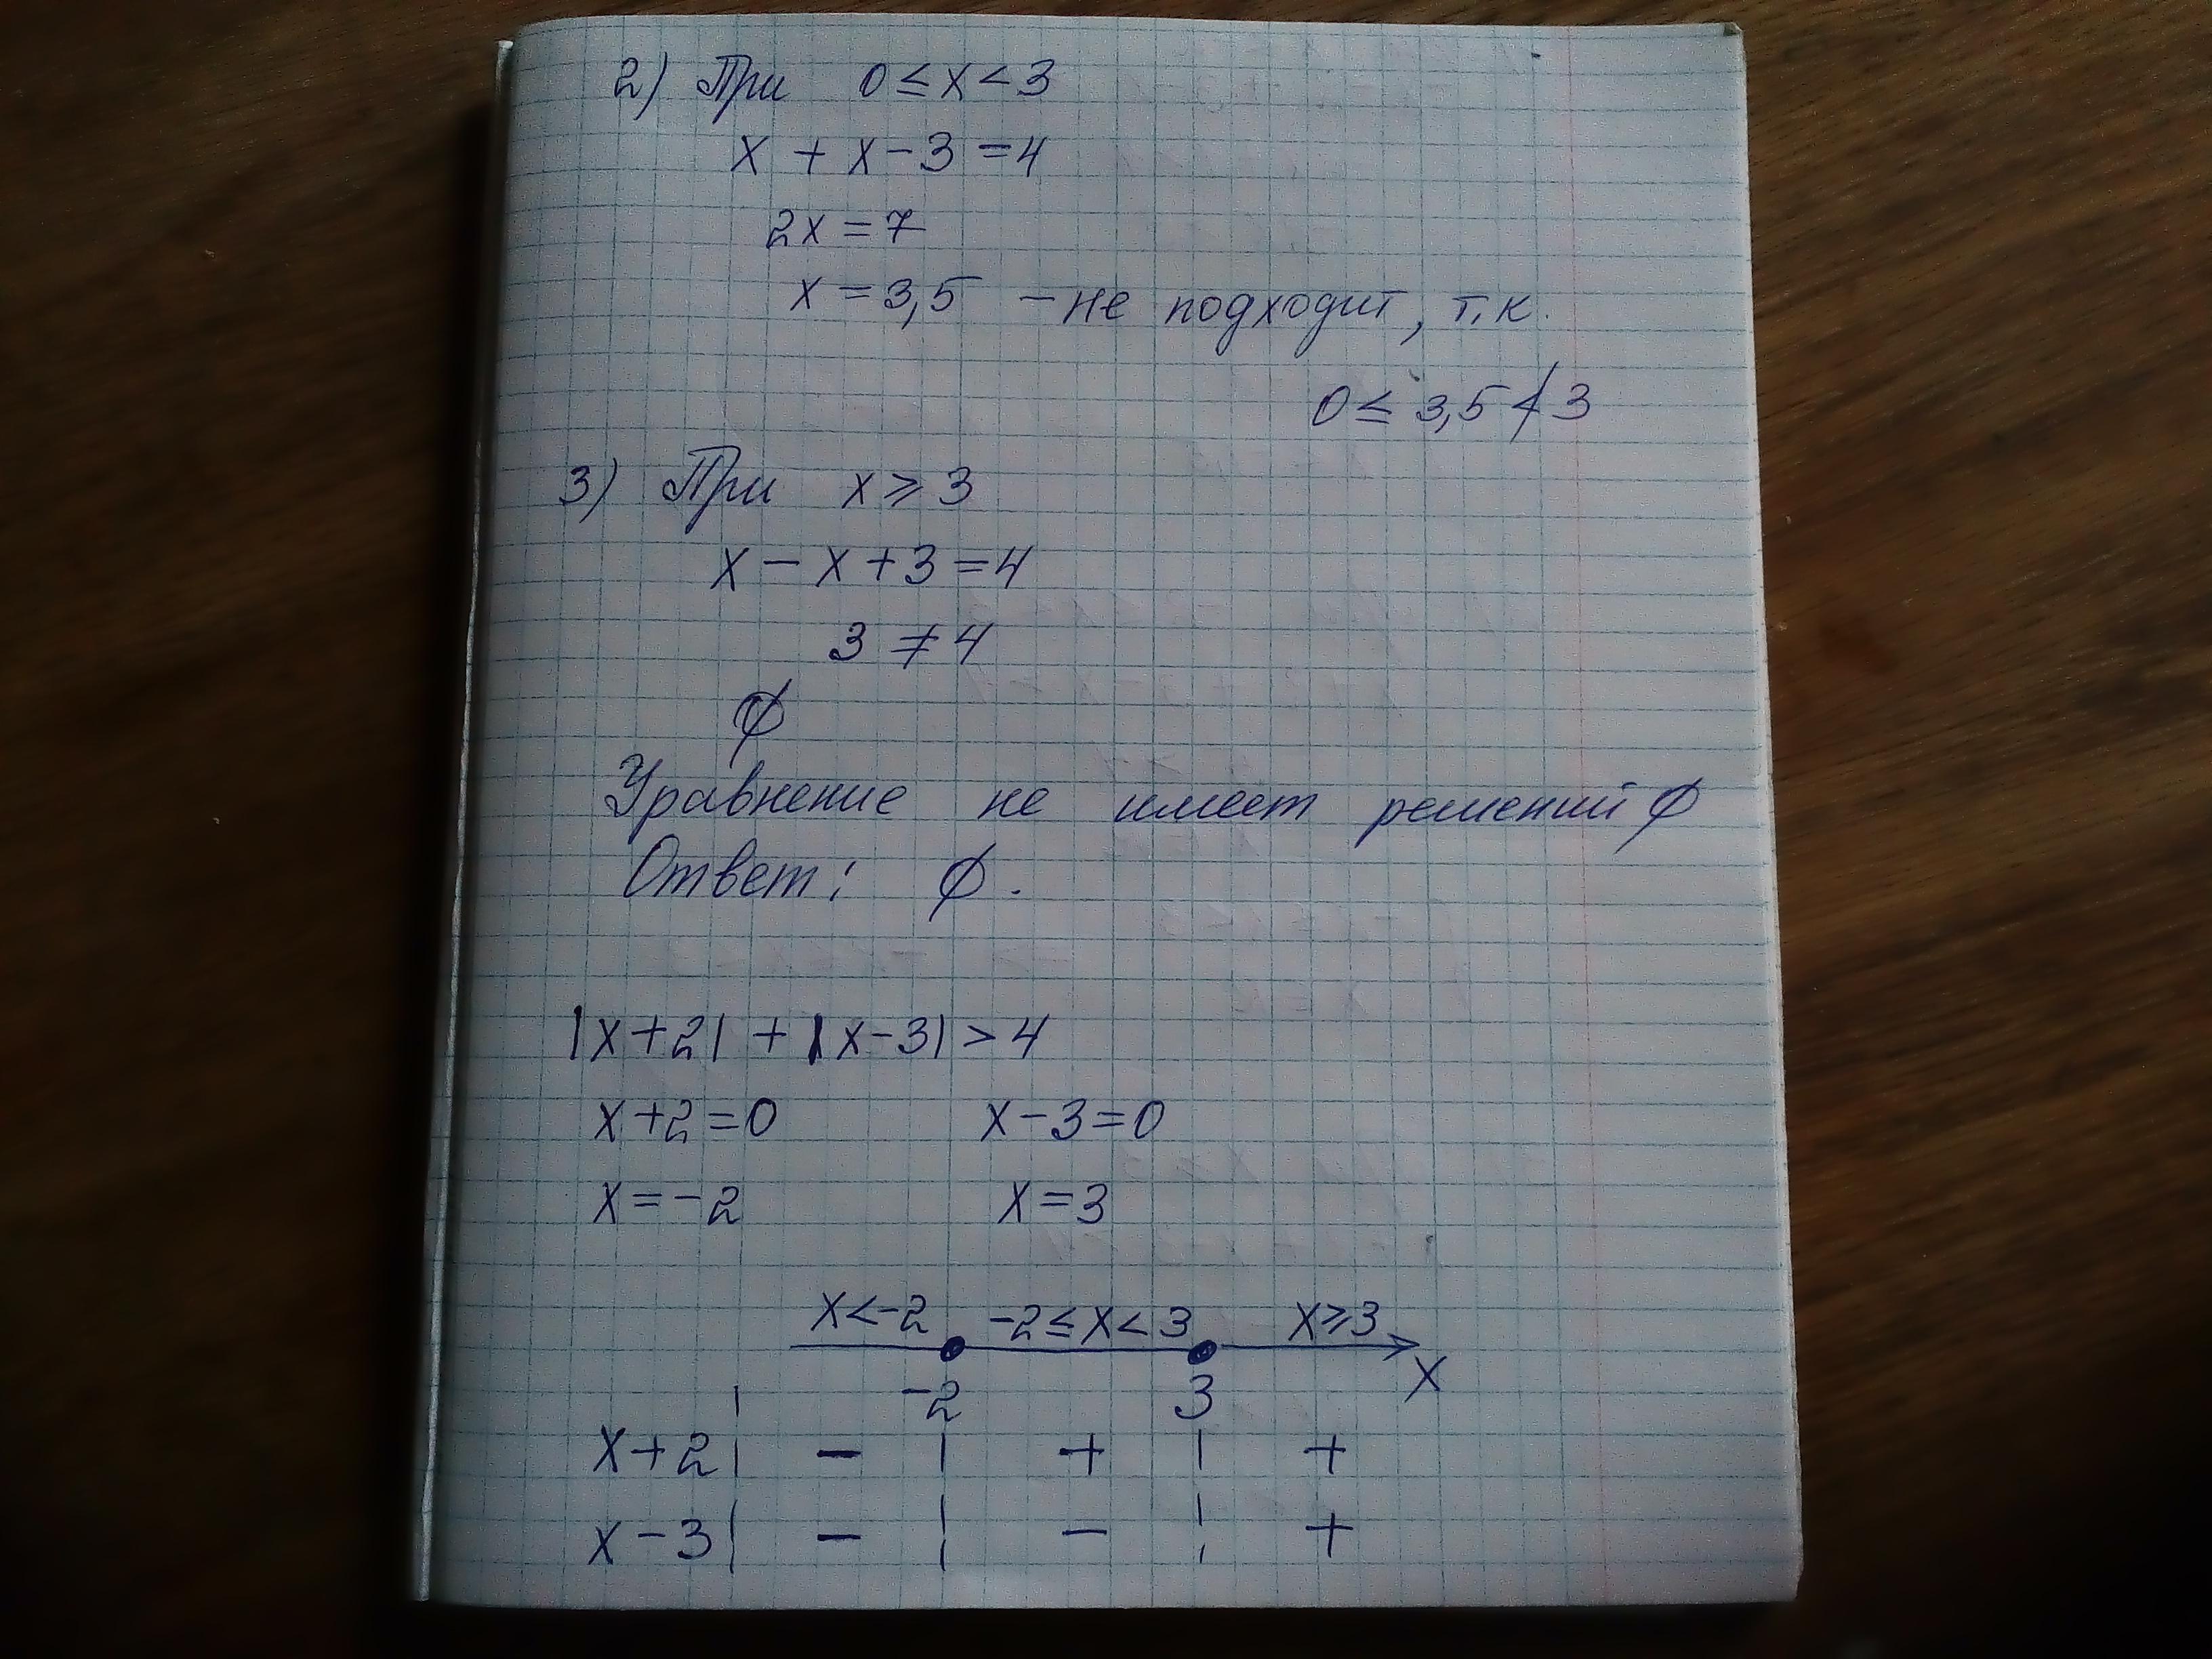 2) При 0 ≤ x < 3
x + x - 3 = 4
2x = 7
x = 3,5 - не подходит, т.к.
0 ≤ 3,5 ≮ 3
3) При x ⩾ 3
x - x + 3 = 4
3 ≠ 4
∅
Уравнение не имеет решений ∅
Ответ: ∅.
|x+2| + |x-3| > 4
x+2=0 x-3=0
x=-2 x=3
x<-2 -2≤x<3 x⩾3
x
-2 3
x+2 | - | + | +
x-3 | - | - | +